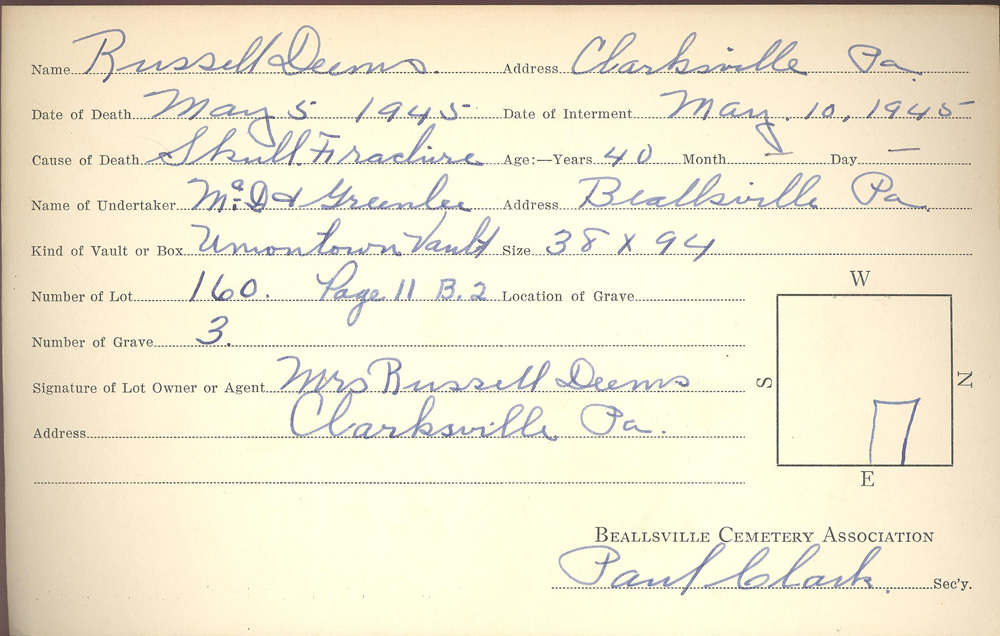 Name Russell Deems. Address Clarksville Pa.
Date of Death May 5 1945 Date of Interment May. 10, 1945
Cause of Death Skull Fracture Age:—Years 40 Month — Day —
Name of Undertaker McD & Greenlee Address Beallsville Pa.
Kind of Vault or Box Uniontown Vault Size 38 x 94
Number of Lot 160. Page 11 B.2 Location of Grave
Number of Grave 3.
Signature of Lot Owner or Agent Mrs Russell Deems
Address Clarksville Pa.
W
S
N
E
BEALLSVILLE CEMETERY ASSOCIATION
Paul Clark. Sec'y.